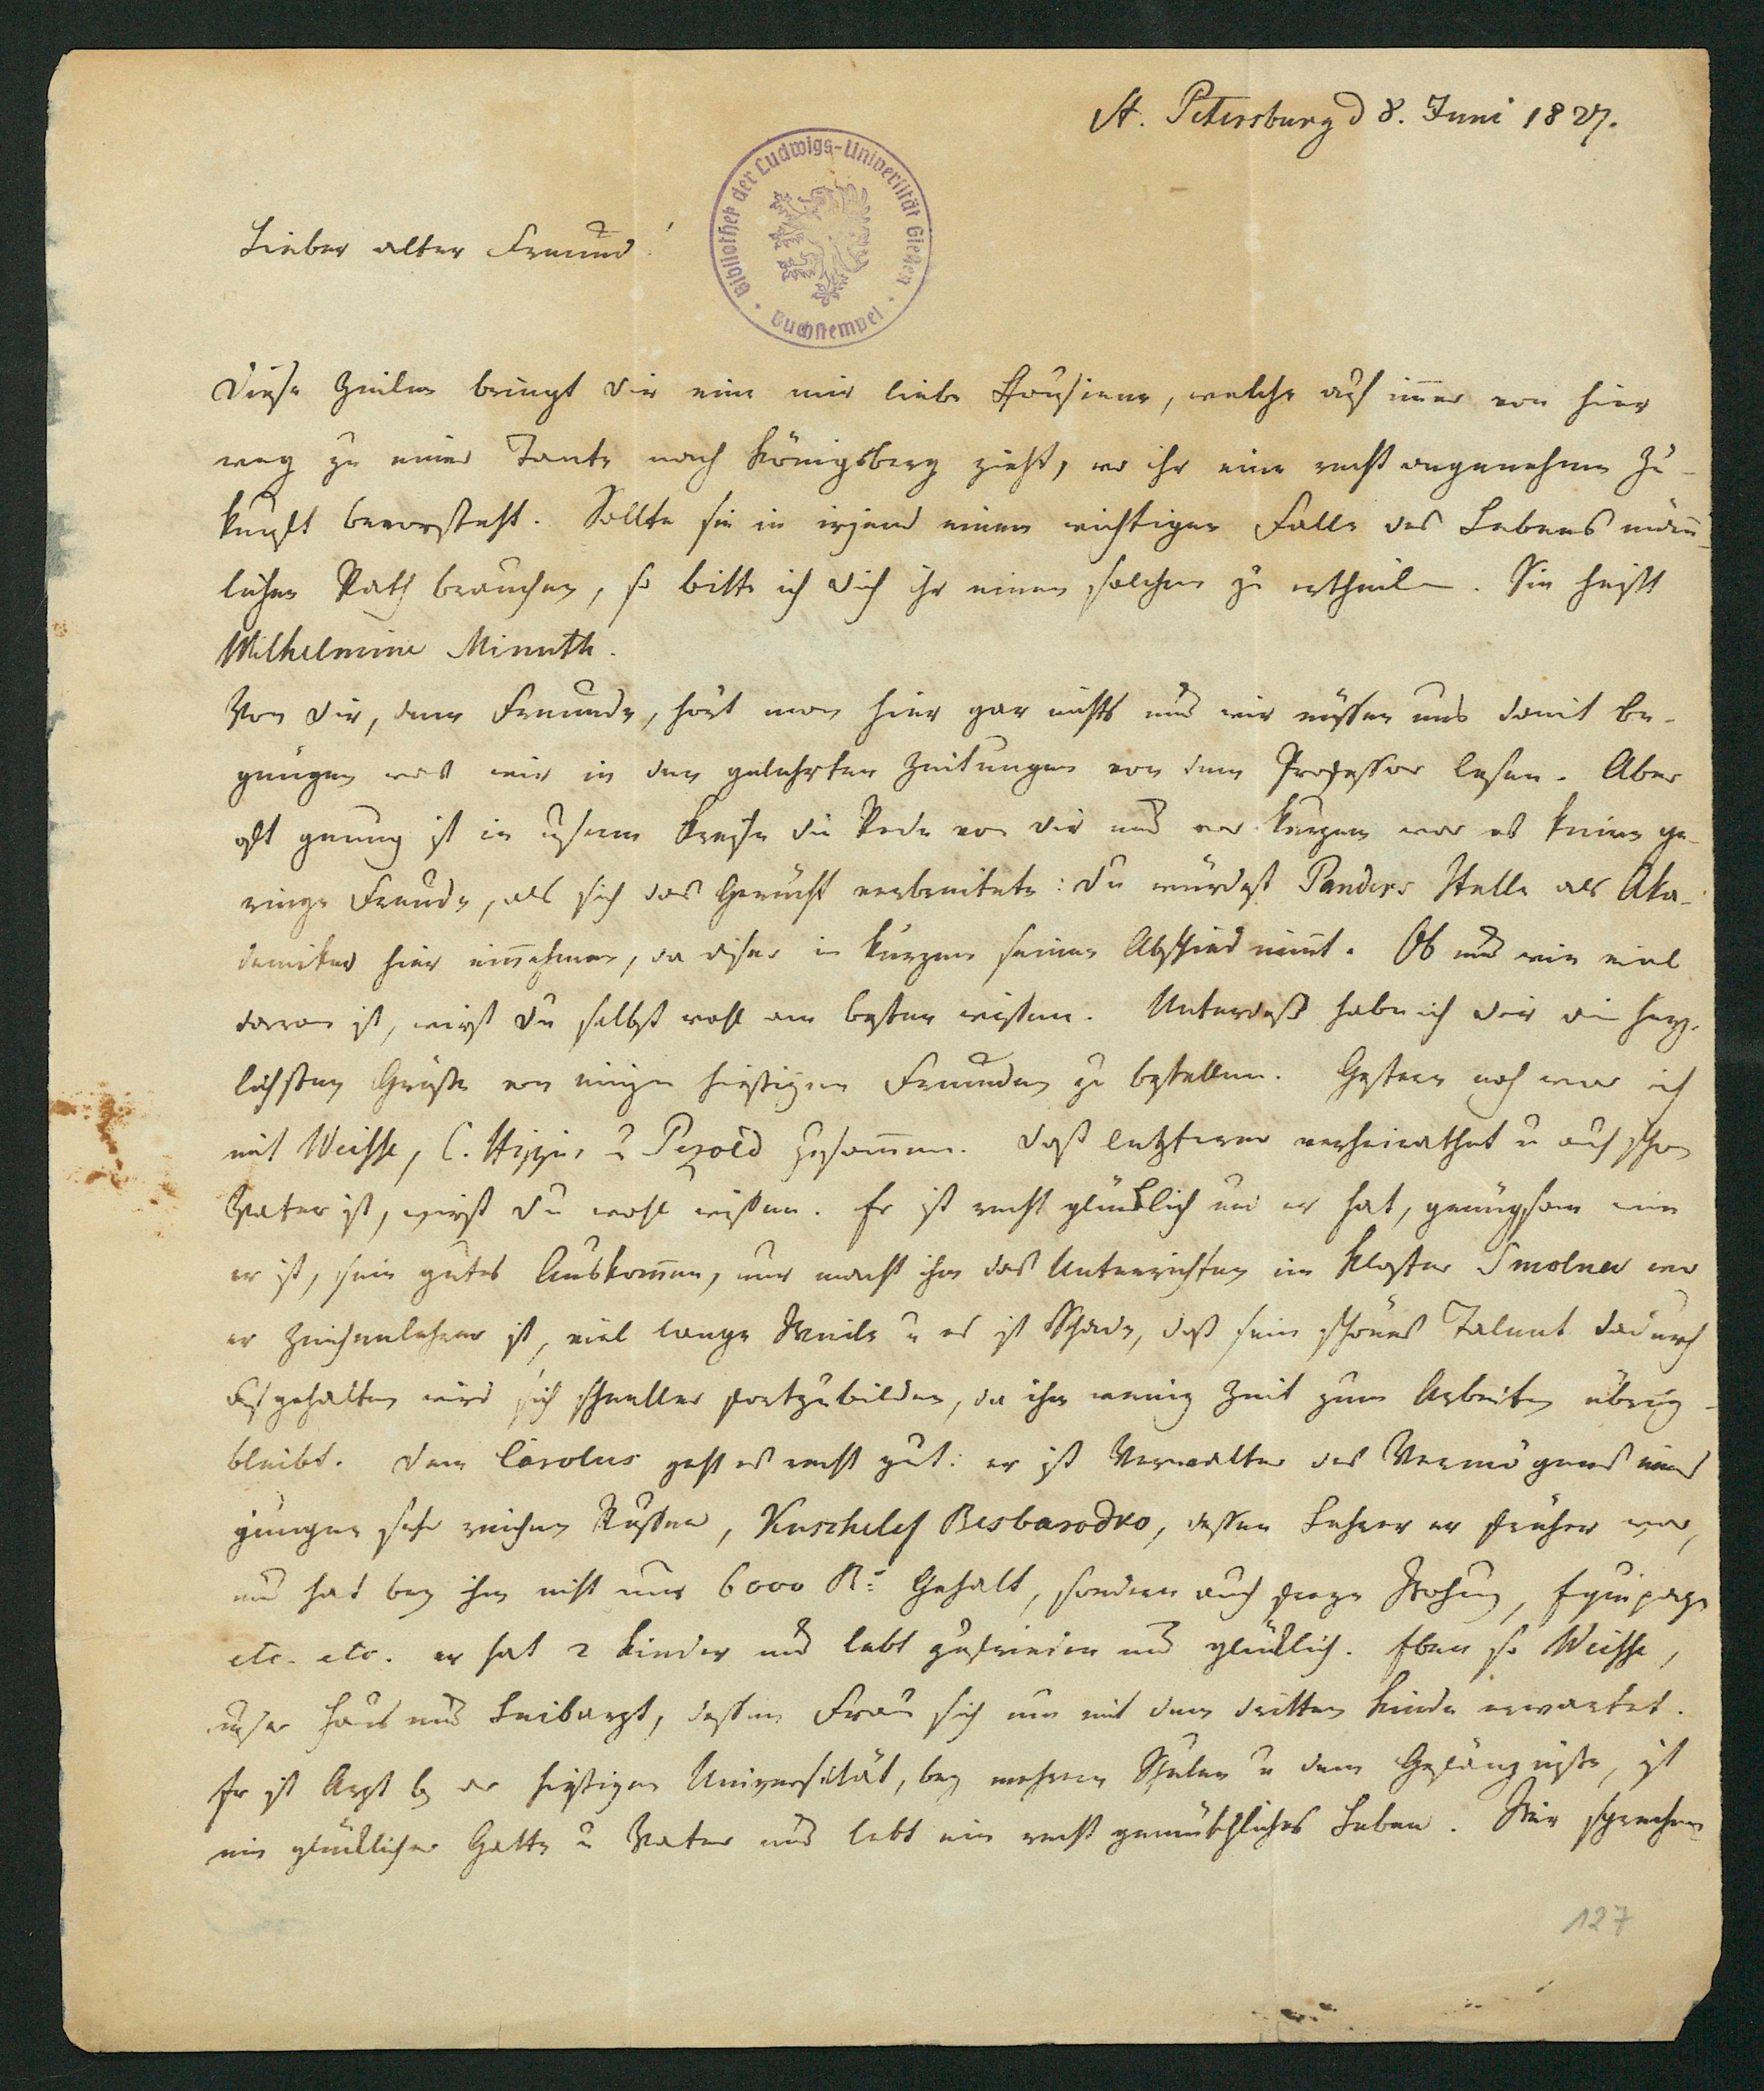 St. Petersburg d 8. Juni 1827.
Bibliothek der Ludwigs-Universität Gießen
Buchstempel
Lieber alter Freund!
Diese Zeilen bringt dir eine mir liebe Cousine, welche auf imer von hier
weg zu einer Tante nach Königsberg zieht, wo ihr eine recht angenehme Zu-
kunft bevorsteht. Sollte sie in irgend einem wichtigen Falle des Lebens män̄-
lichen Rath brauchen, so bitte ich dich ihr einen solchen zu ertheilen. Sie heißt
Wilhelmine Minuth.
Von dir, dem Freunde, hört man hier gar nichts und wir müssen uns damit be-
gnügen was wir in den gelehrten Zeitungen von dem Professor lesen. Aber
oft genug ist in unserm Kreise die Rede von dir und vor kurzem war es keine ge-
ringe Freude, als sich das Gerücht verbreitete: du würdest Panders Stelle als Aka-
demiker hier einnehmen, da dieser in kurzem seinen Abschied nim̄t. Ob und wie viel
daran ist, wirst du selbst wohl am besten wissen. Unterdeß habe ich dir die herz-
lichsten Grüße von einigen hiesigen Freunden zu bestellen. Gestern noch war ich
mit Weisse, C. Hippius u Pezold zusam̄en. Daß letzterer verheirathet u auch schon
Vater ist, wirst du wohl wissen. Er ist recht glücklich und er hat, genügsam wie
er ist, sein gutes Auskom̄en, nur macht ihm das Unterrichten im Kloster Smolna wo
er Zeichenlehrer ist, viel lange Weile u es ist Schade, daß sein schönes Talent dadurch
abgehalten wird sich schneller fortzubilden, da ihm wenig Zeit zum Arbeiten übrig
bleibt. Dem Carolus geht es recht gut: er ist Verwalter des Vermögens eines
jungen sehr reichen Russen, Kuschelef Besbarodko, dessen Lehrer er früher war,
und hat bey ihm nicht nur 6000 R: Gehalt, sondern auch freye Wohnung, Equipage
etc. etc. er hat 2 Kinder und lebt zufrieden und glücklich. Eben so Weisse,
unser Haus und Leibarzt, dessen Frau sich nun mit dem dritten Kinde erwartet.
Er ist Arzt bey der hiesigen Universität, bey mehrern Schulen u dem Gefängnisse, ist
ein glücklicher Gatte u Vater und lebt ein recht gemüthliches Leben. Wir sprechen
127